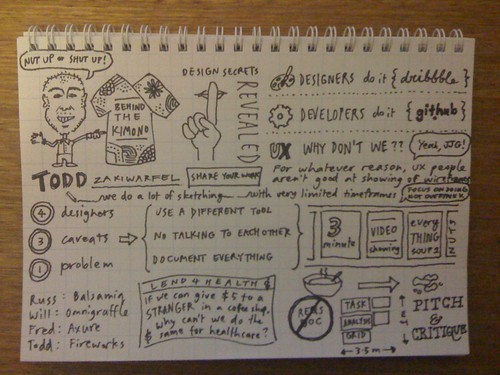 NUT UP or SHUT UP!
BEHIND
THE
KIMONO
TODD ZAKIWARFEL
DESIGN SECRETS
REVEALED
SHARE YOUR WORK
DESIGNERS do it { dribbble }
DEVELOPERS do it { github }
UX WHY DON'T WE??
Yeah, JJG!
For whatever reason, UX people
aren't good at showing of wireframes
FOCUS ON DOING
we do a lot of sketching with very limited timeframes
4 designers
3 caveats
1 problem
USE A DIFFERENT TOOL
NO TALKING TO EACHOTHER
DOCUMENT EVERYTHING
3
minute
VIDEO
showing
every
THING
SOUP!
Russ: Balsamiq
Will: Omnigraffle
Fred: Axure
Todd: Fireworks
LEND 4 HEALTH
If we can give $5 to a
STRANGER in a coffeeshop,
why can't we do the
same for healthcare?
REQS
DOC
TASK
ANALYSIS
GRID
3-5m
PITCH
&
CRITIQUE